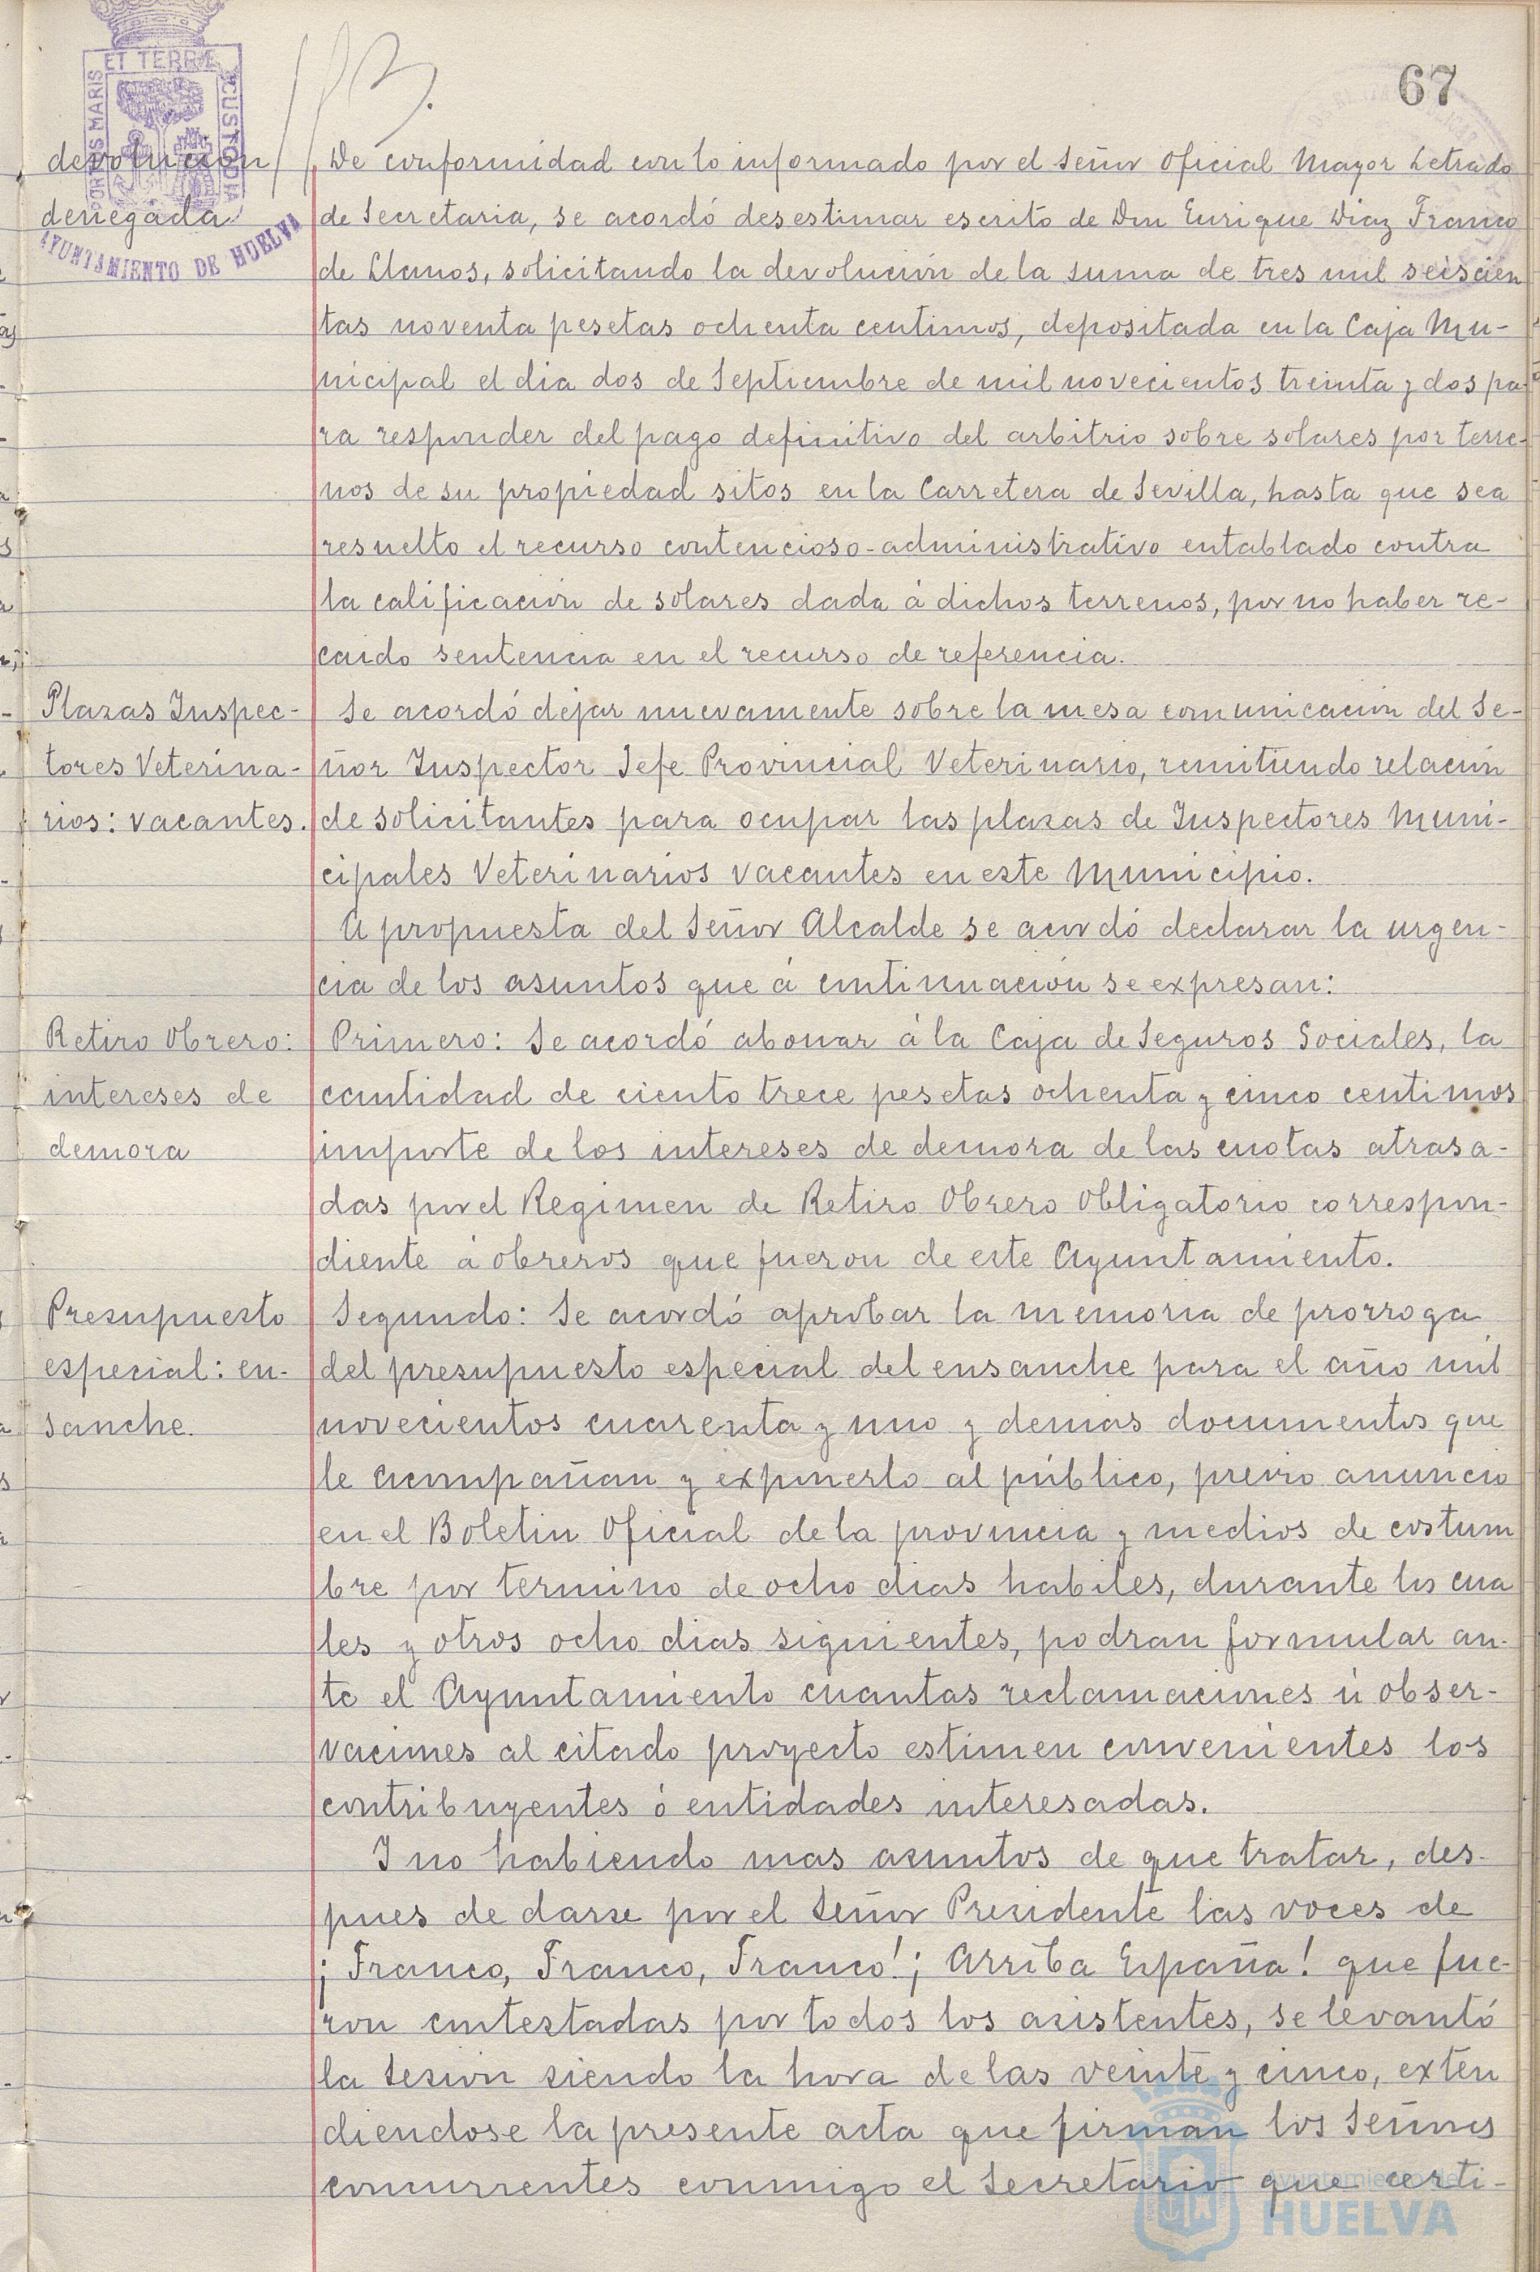 67
ET TERRÆ
CUSTODIA
PORTUS MARIS
AYUNTAMIENTO DE HUELVA
devolución
denegada
De conformidad con lo informado por el Señor Oficial Mayor Letrado
de Secretaria, se acordó desestimar escrito de Don Enrique Diaz Franco
de Llanos, solicitando la devolución de la suma de tres mil seiscien
tas noventa pesetas ochenta centimos, depositada en la Caja Mu-
nicipal el dia dos de Septiembre de mil novecientos treinta y dos pa-
ra responder del pago definitivo del arbitrio sobre solares por terre-
nos de su propiedad sitos en la Carretera de Sevilla, hasta que sea
resuelto el recurso contencioso-administrativo entablado contra
la calificación de solares dada á dichos terrenos, por no haber re-
caido sentencia en el recurso de referencia.
Plazas Inspec-
tores Veterina-
rios: vacantes.
Se acordó dejar nuevamente sobre la mesa comunicación del Se-
ñor Inspector Jefe Provincial Veterinario, remitiendo relación
de solicitantes para ocupar las plazas de Inspectores Muni-
cipales Veterinarios vacantes en este Municipio.
A propuesta del Señor Alcalde se acordó declarar la urgen-
cia de los asuntos que á continuación se expresan:
Retiro Obrero:
intereses de
demora
Primero: Se acordó abonar á la Caja de Seguros Sociales, la
cantidad de ciento trece pesetas ochenta y cinco centimos
importe de los intereses de demora de las cuotas atrasa-
das por el Regimen de Retiro Obrero Obligatorio correspon-
diente á obreros que fueron de este Ayuntamiento.
Presupuesto
especial: en-
sanche.
Segundo: Se acordó aprobar la memoria de prorroga
del presupuesto especial del ensanche para el año mil
novecientos cuarenta y uno y demás documentos que
le acompañan y exponerlo al público, previo anuncio
en el Boletin Oficial de la provincia y medios de costum
bre por termino de ocho dias habiles, durante los cua
les y otros ocho dias siguientes, podran formular an-
te el Ayuntamiento cuantas reclamaciones ú obser-
vaciones al citado proyecto estimen convenientes los
contribuyentes ó entidades interesadas.
Y no habiendo mas asuntos de que tratar, des-
pues de darse por el Señor Presidente las voces de
¡Franco, Franco, Franco! ¡Arriba España! que fue-
ron contestadas por todos los asistentes, se levantó
la sesión siendo la hora de las veinte y cinco, exten
diendose la presente acta que firman los Señores
concurrentes conmigo el Secretario que certi-
Ayuntamiento de
HUELVA